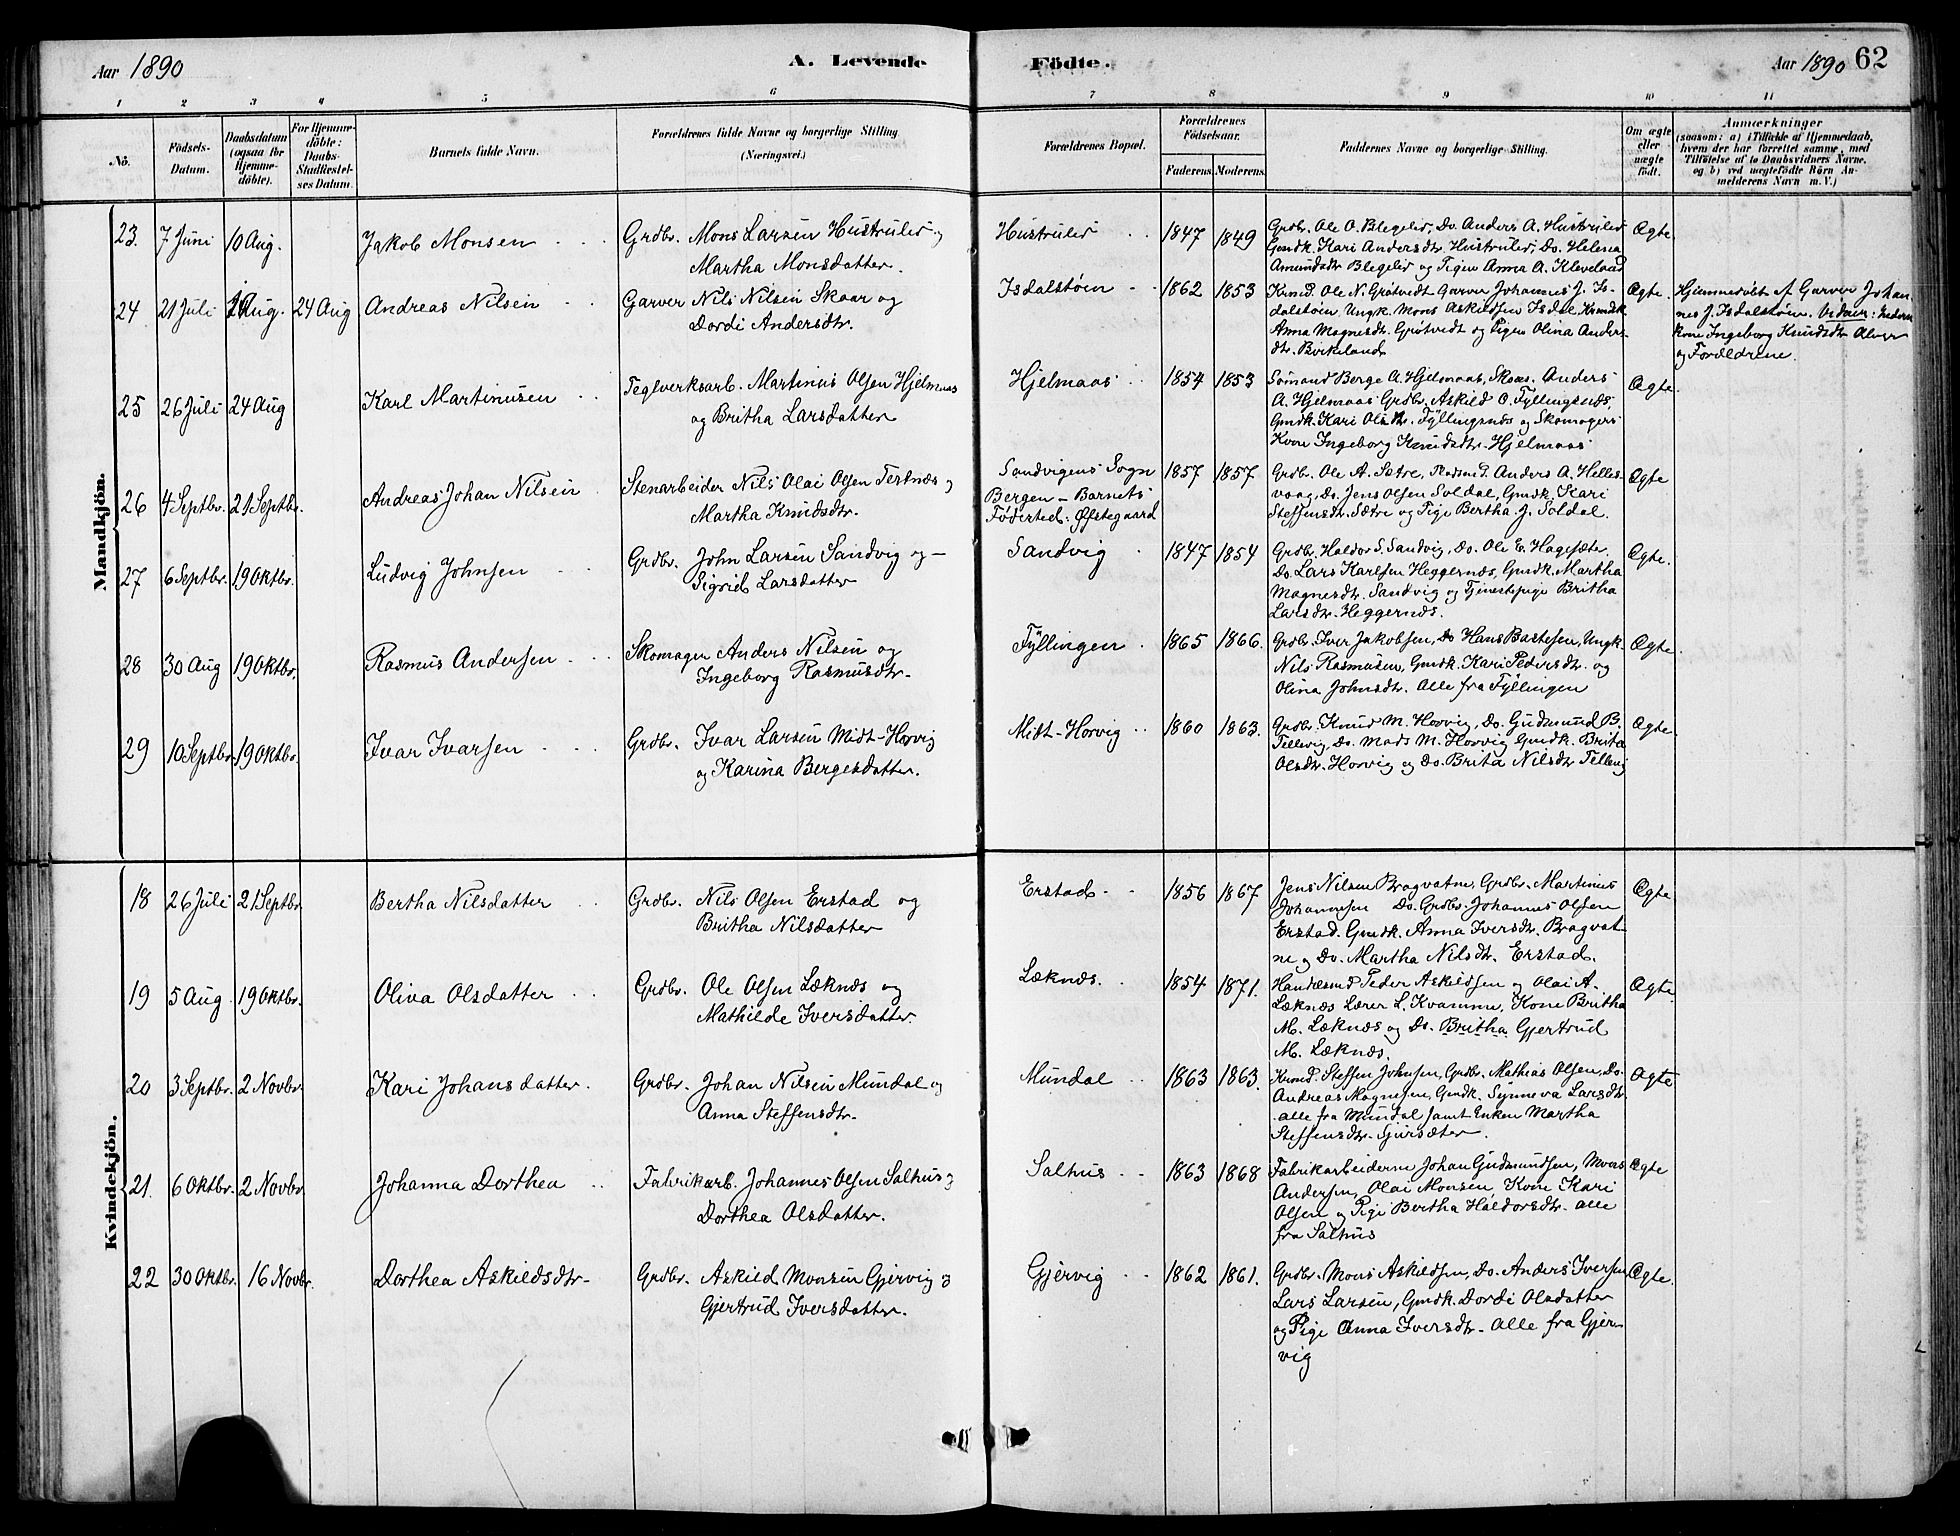 Aar 1890 A. Levende Födte. Aar 1890 62
1 2 3 4 5 6 7 8 9 10 11
No.
Födsels-Datum.
Daabsdatum (ogsaa for Hjemme-döbte).
For Hjemme-döbte: Daabs-Stadfæstel-ses Datum.
Barnets fulde Navn.
Forældrenes fulde Navne og borgerlige Stilling (Næringsvei.)
Forældrenes Bopæl.
Forældrenes Födselsaar.
Faderens. Moderens.
Faddernes Navne og borgerlige Stilling.
Om ægte eller uægte födt.
Anmærkninger
(saasom: a) i Tilfælde af Hjemmedaab,
hvem der har forrettet samme, med
Tilföielse af to Daabsvidners Navne,
og b) ved uægtefödte Börn An-
melderens Navn m. V.)
Mandkjön.
23. 7 Juni 10 Aug. Jakob Monsen Grdbr. Mons Larsen Hustrulid og
Martha Monsdatter.
Hustrulid 1847 1849
Grdbr. Ole O. Blegelid, Do. Anders A. Hustrulid
Gmdk. Kari Andersdtr. Hustrulid, Do. Helena
Amundsdtr Blegelid og Pigen Anna A. Kleveland
Ægte.
24 21 Juli Aug. 24 Aug Andreas Nilsen Garver Nils Nilsen Skaar og
Dordi Andersdtr.
Isdalstøen 1862 1853
Krmd. Ole N. Grøtvedt Garver Johannes J. Is-
dalstøen, Ungk. Mons Askildsen Isdal, Krmdsk.
Anna Magnesdtr. Grøtvedt og Pigen Olina Anders
dtr. Birkeland
Ægte.
Hjemmedøbt af Garver Johan-
nes J. Isdalstøen. Vidner:
kone Ingeborg Knudsdtr Alver
og Forældrene.
25 26 Juli 24 Aug Karl Martinusen Teglverksarb. Martinus Olsen Hjelmaas
og Britha Larsdatter
Hjelmaas 1854 1853
Sømand Berge A. Hjelmaas, Skom. Anders
A. Hjelmaas Grdbr. Askild O. Fyllingsnæs,
Gmdk. Kari Olsdtr. Fyllingsnæs og Skomagers
Kone Ingeborg Knudsdtr. Hjelmaas
Ægte.
26 4 Septbr. 21 Septbr. Andreas Johan Nilsen Stenarbeider Nils Olai Olsen Tertnæs og
Martha Knudsdtr.
Sandvigens Sogn
Bergen - Barnets
Fødested: Østegaard
1857 1857
Grdbr. Ole A. Sætre, Anders A. Helles-
vaag, Do. Jens Olsen Soldal, Gmdk. Kari
Steffensdtr. Sætre og Pige Bertha J. Soldal.
Ægte
27 6 Septbr. 19 Oktbr. Ludvig Johnsen Grdbr. John Larsen Sandvig og -
Sigrid Larsdatter
Sandvig 1847 1854
Grdbr. Haldor S. Sandvig, Do. Ole E. Hagesæter
Do. Lars Karlsen Heggernæs, Gmdk. Martha
Magnesdtr. Sandvig og Tjenestepige Britha
Larsdtr. Heggernæs.
Ægte.
28 30 Aug 19 Oktbr. Rasmus Andersen Skomager Anders Nilsen og
Ingeborg Rasmusdtr.
Fyllingen 1865 1866.
Grdbr. Iver Jakobsen, Do Hans Bastesen, Ungk.
Nils Rasmusen, Gmdk. Kari Pedersdtr. og
Olina Johnsdtr. Alle fra Fyllingen
Ægte.
29 10 Septbr. 19 Oktbr. Ivar Ivarsen Grdbr. Ivar Larsen Midt-Horvig
og Karina Bergesdatter.
Midt-Horvig 1860 1863.
Grdbr. Knud M. Horvig, Do. Gudmund B.
Tellevig, Do. Mads M. Horvig Gmdk. Brita
Olsdtr. Horvig og Do. Brita Nilsdtr Tellevig
Ægte.
Kvindekjön.
18 26 Juli 21 Septbr. Bertha Nilsdatter Grdbr. Nils Olsen Erstad og
Britha Nilsdatter
Erstad 1856 1867
Jens Nilsen Bragvatne, Grdbr. Martinus
Johannesen Do. Grdbr. Johannes Olsen
Erstad. Gmdk. Anna Iversdtr. Bragvat-
ne og Do. Martha Nilsdtr. Erstad.
Ægte
19 5 Aug. 19 Oktbr. Oliva Olsdatter Grdbr. Ole Olsen Læknæs og
Mathilde Iversdatter.
Læknæs. 1854 1871.
Handelsmd Peder Askildsen og Olai A.
Læknæs Lærer L. Kvamme, Kone Britha
M. Læknæs og Do. Britha Gjertrud
M. Læknæs.
Ægte
20 3 Septbr. 2 Novbr. Kari Johansdatter. Grdbr. Johan Nilsen Mundal og
Anna Steffensdtr.
Mundal 1863 1863.
Krmd. Steffen Johnsen, Grdbr. Mathias Olsen, Do.
Andreas Magnesen, Gmdk. Synneva Larsdtr.
alle fra Mundal samt Enken Martha
Steffensdtr. Sjursæter.
Ægte
21. 6 Oktbr. 2 Novbr. Johanna Dorthea Fabrikarb. Johannes Olsen Salhus og
Dorthea Olsdatter.
Salhus 1863 1868
Fabrikarbeiderne Johan Gudmundsen, Mons
Andersen, Olai Monsen Kone Kari
Olsen og Pige Bertha Haldorsdtr. alle
fra Salhus
Ægte
22 30 Oktbr. 16 Novbr. Dorthea Askildsdtr. Grdbr. Askild Monsen Gjervig og
Gjertrud Iversdatter.
Gjervig 1862 1861.
Grdbr. Mons Askildsen, Do. Anders Iversen
Lars Larsen, Gmdk. Dordi Olsdatter
og Pige Anna Iversdtr. Alle fra Gjer-
vig
Ægte.